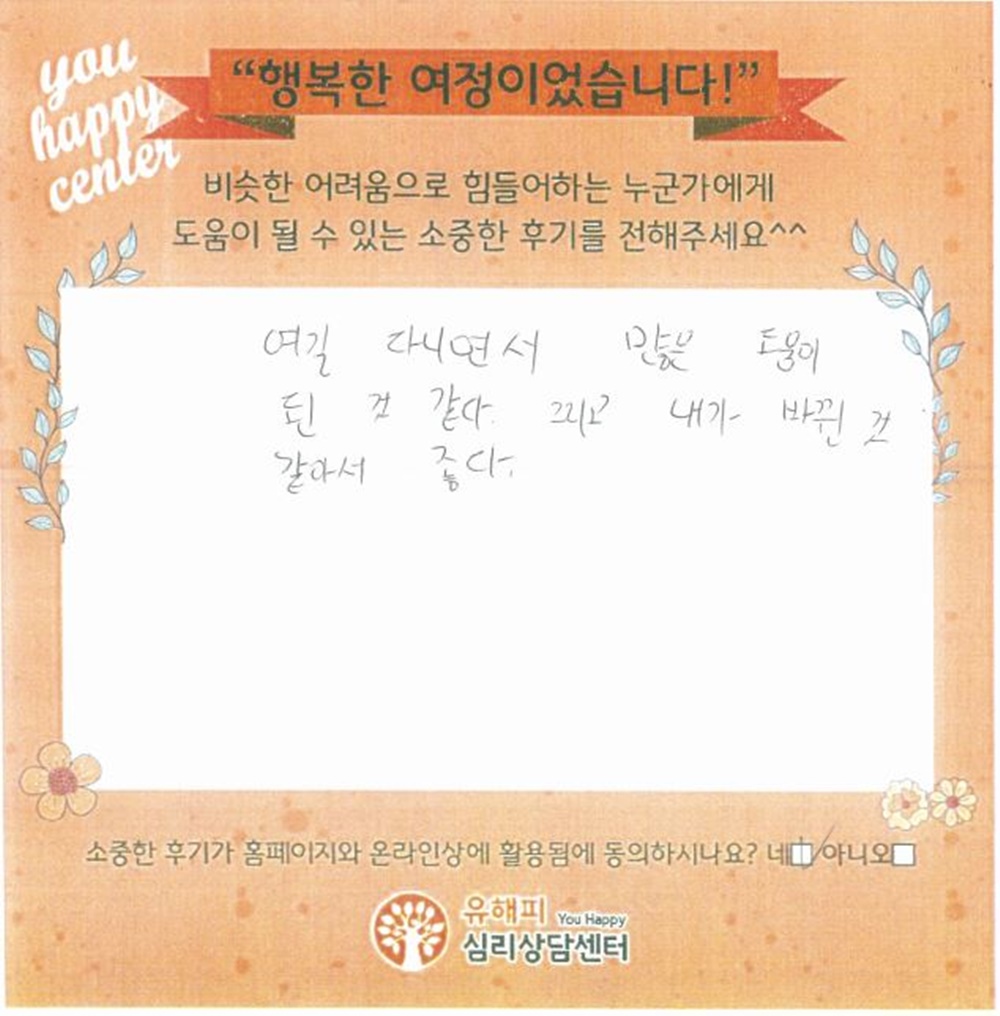 you
happy
center
“행복한 여정이었습니다!”
비슷한 어려움으로 힘들어하는 누군가에게
도움이 될 수 있는 소중한 후기를 전해주세요^^
여길 다니면서 많은 도움이
된 것 같다. 그리고 내가 바뀐 것
같아서 좋다.
소중한 후기가 홈페이지와 온라인상에 활용됨에 동의하시나요? 네 아니오
유해피 You Happy
심리상담센터